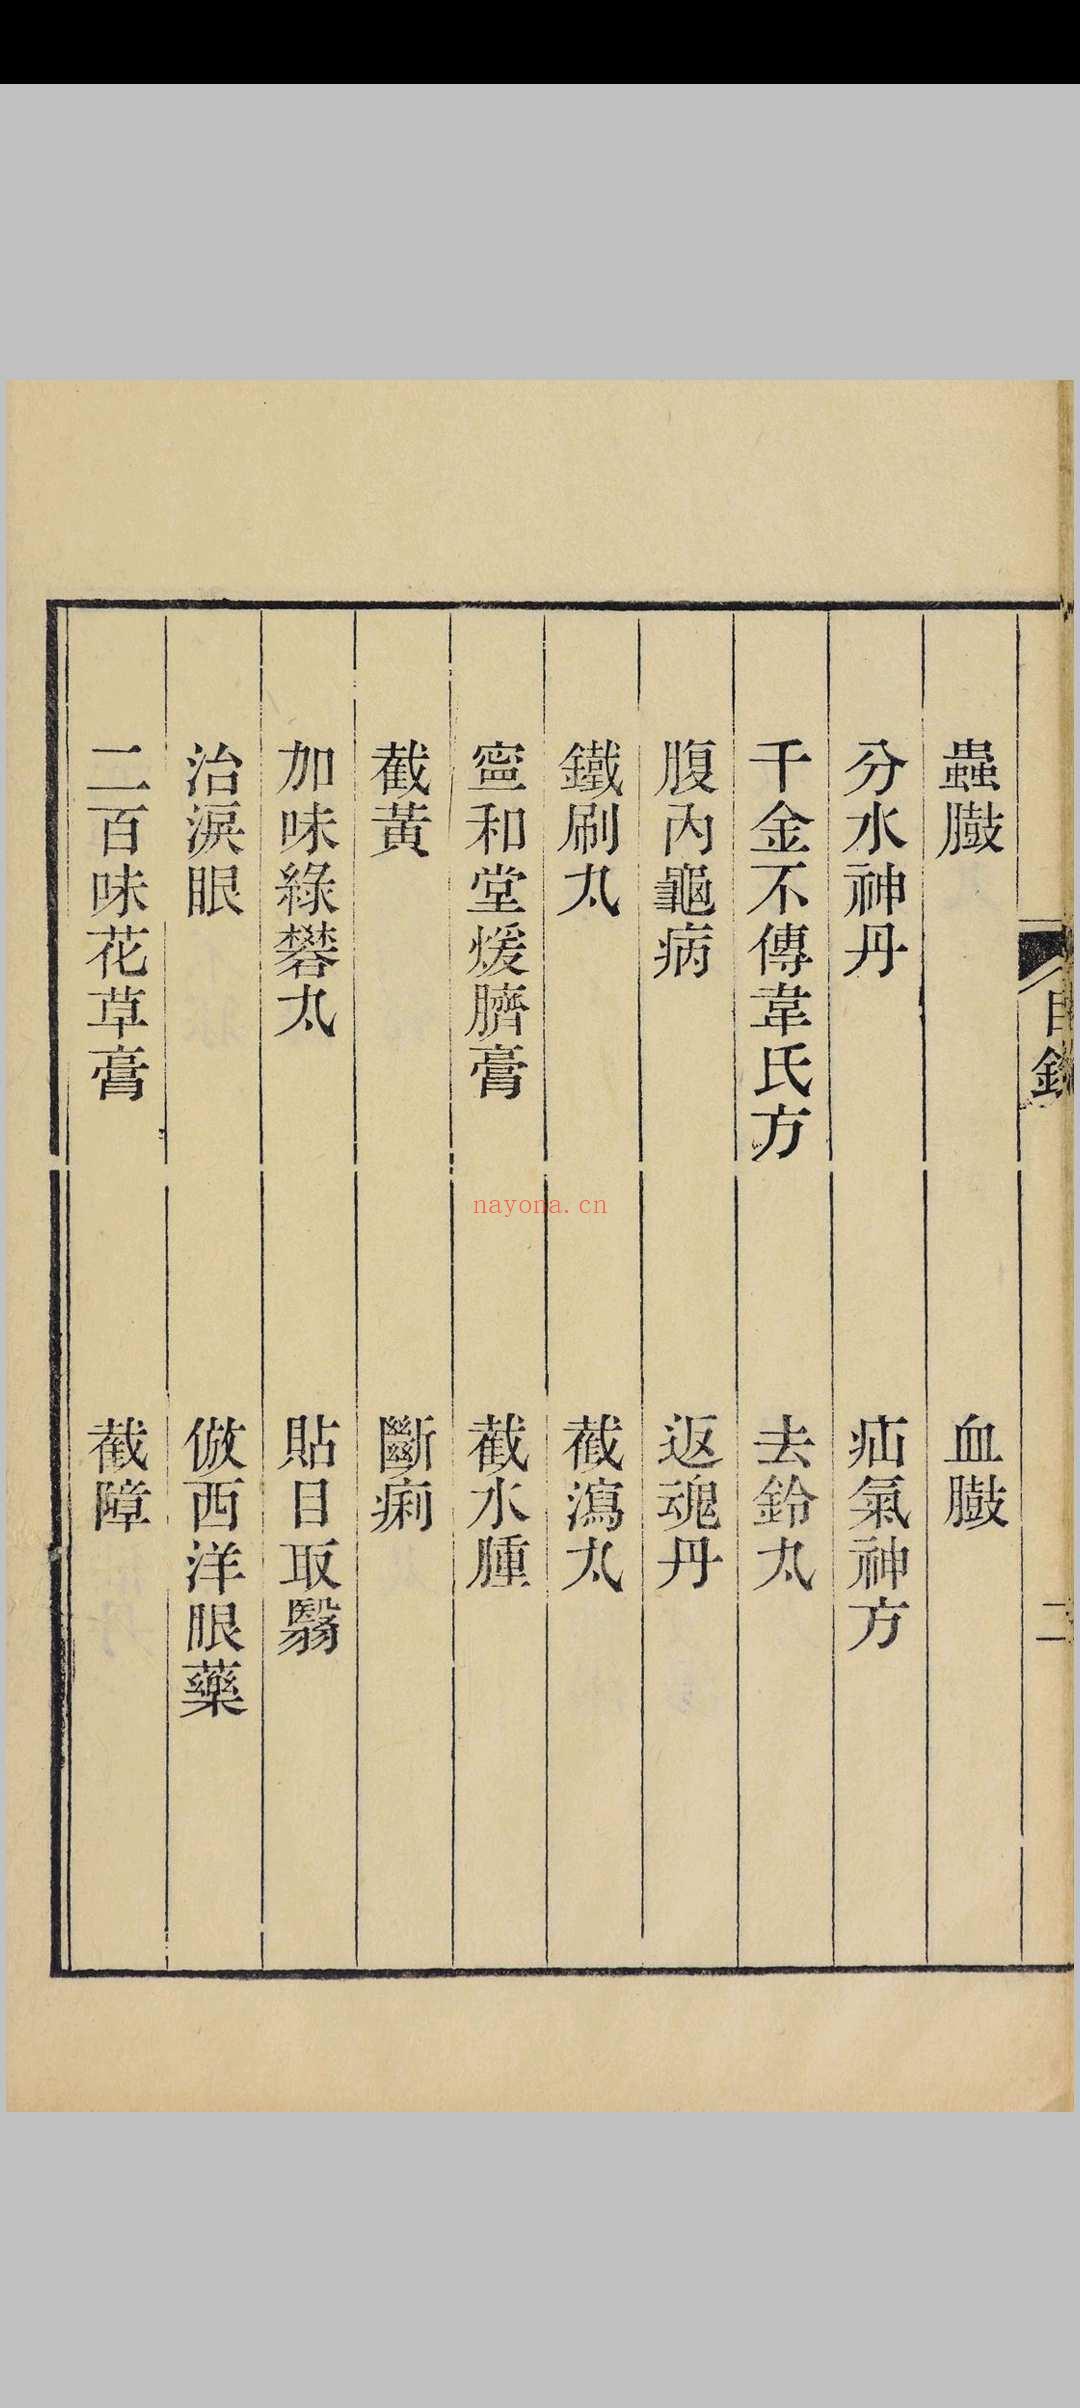 目錄
二
蟲臌
血臌
分水神丹
疝氣神方
千金不傳韋氏方
去鈴丸
腹內龜病
返魂丹
鐵刷丸
截瀉丸
寍和堂煖臍膏
截水腫
截黃
斷痢
加味綠礬丸
貼目取翳
治淚眼
倣西洋眼藥
二百味花草膏
截障
nayona.cn